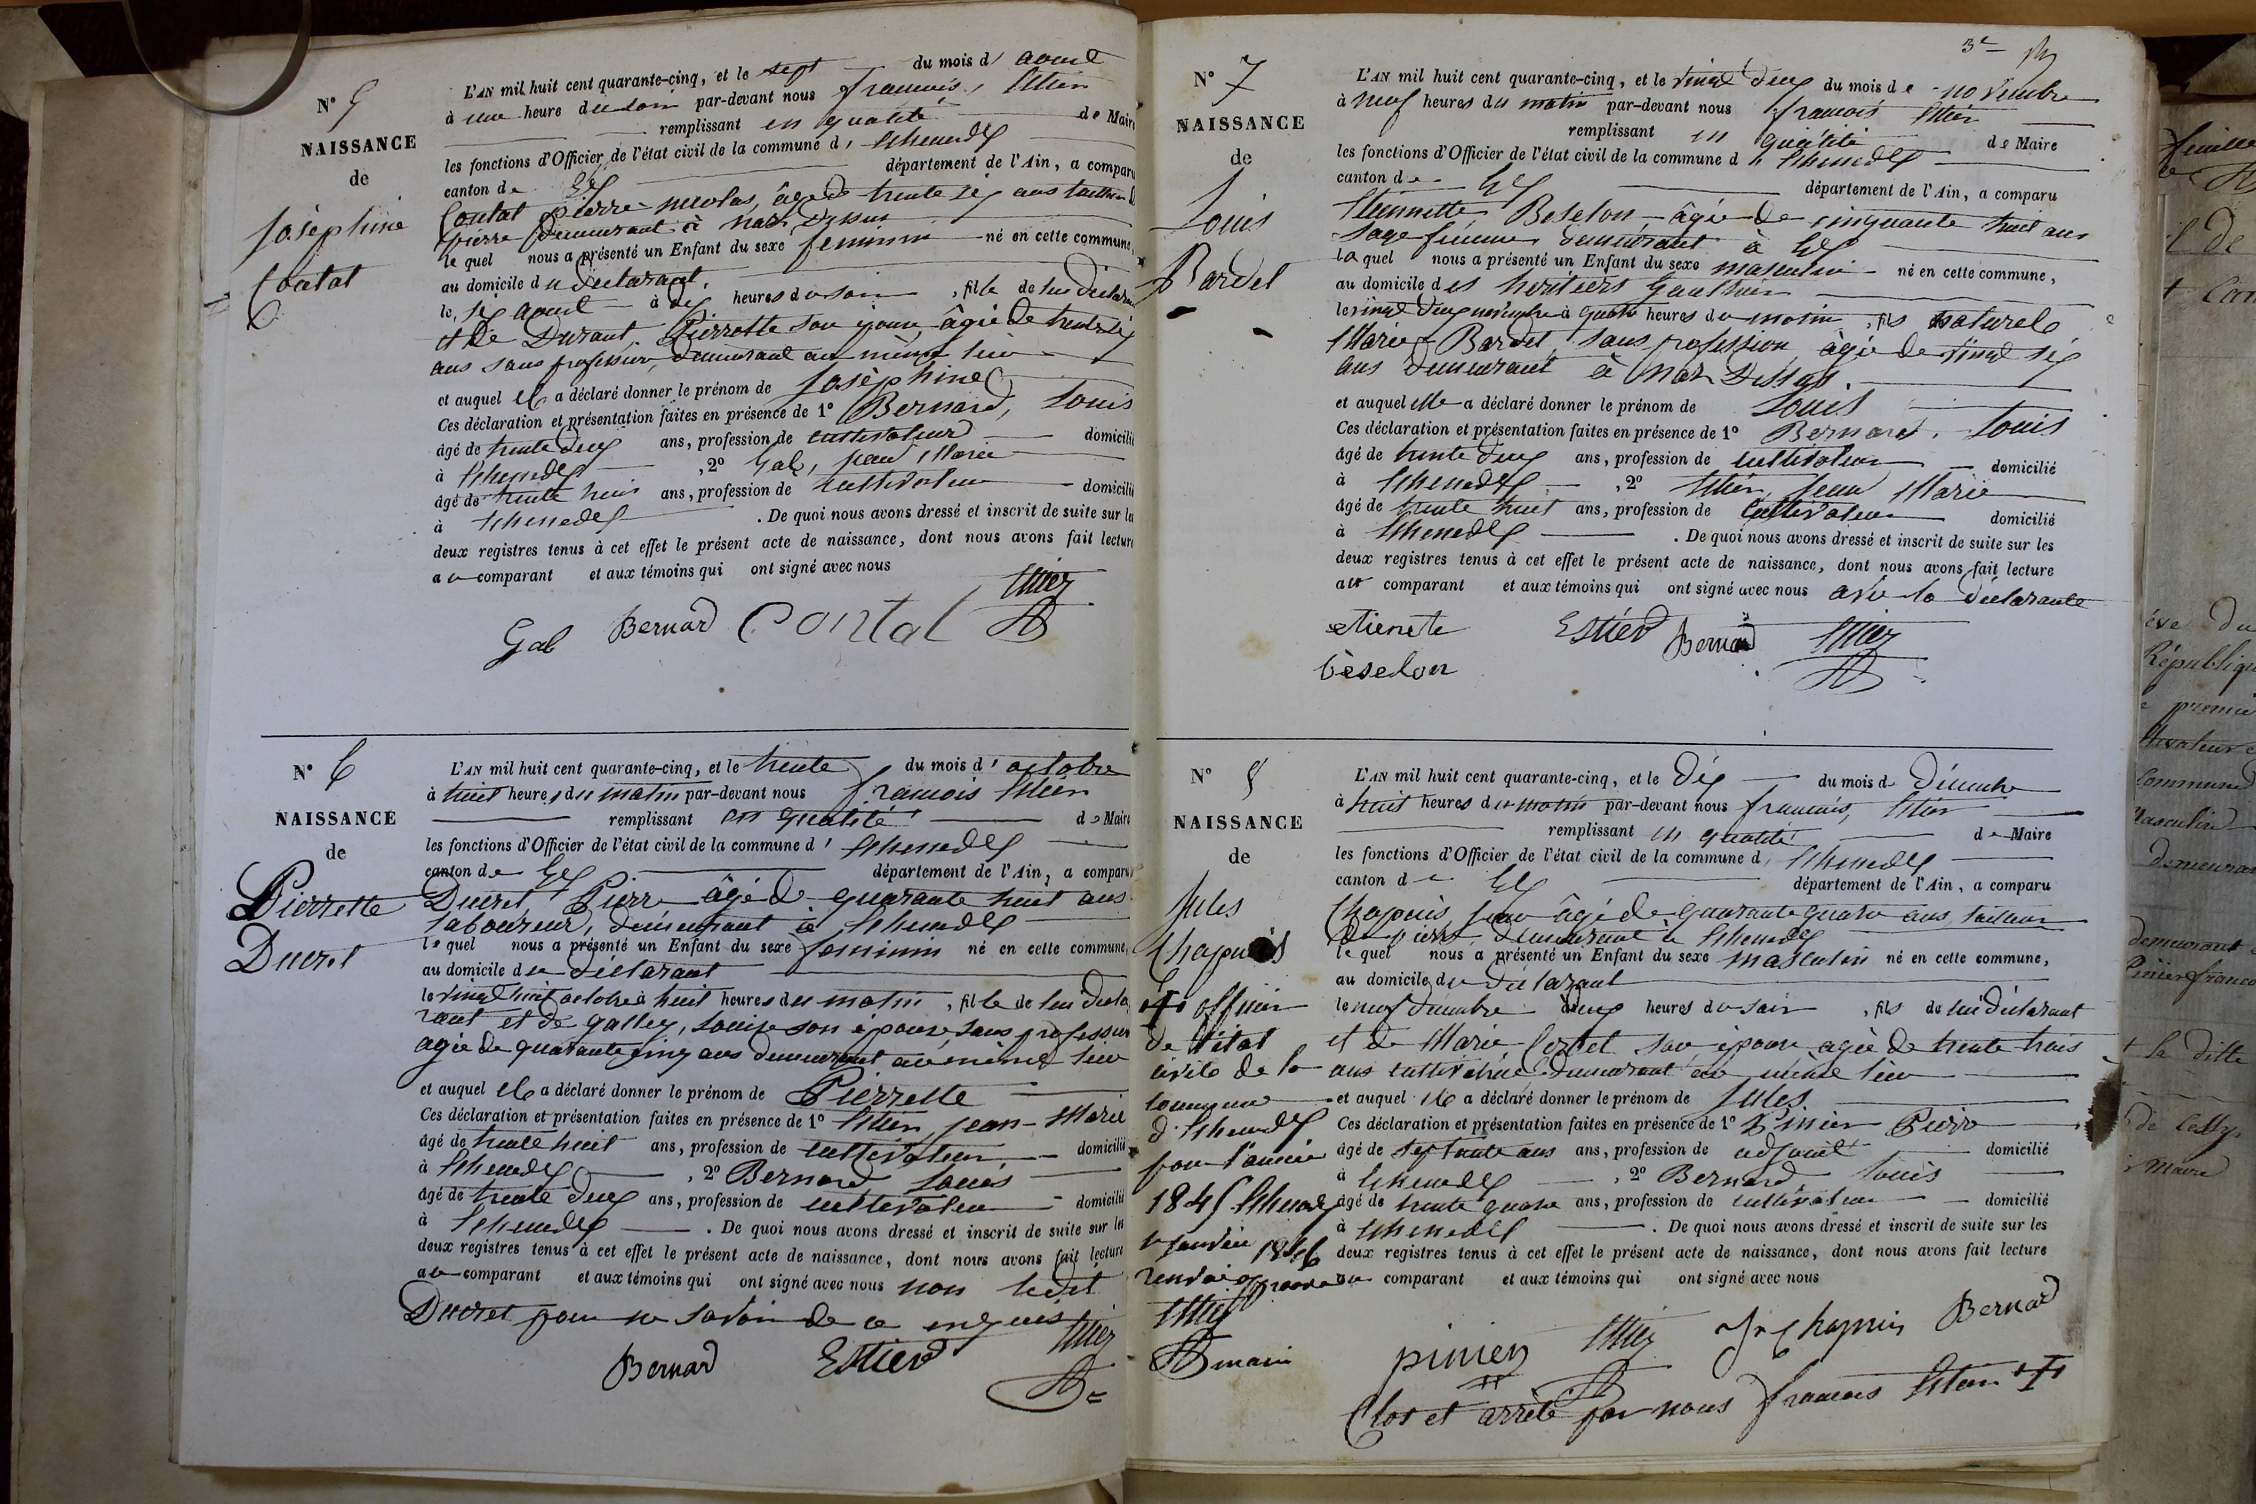 N° 5
NAISSANCE
de
Joséphine
Contat
L'AN mil huit cent quarante-cinq, et le sept du mois d'aout
à une heure du soir par-devant nous françois, Estier
remplissant en qualité de Maire
les fonctions d'Officier de l'état civil de la commune d' Echenedex
canton de Gex département de l'Ain, a comparu
Contat pierre nicolas, âgé de trente six ans tailleur de
pierre demeurant à Naz Dessus
le quel nous a présenté un Enfant du sexe feminin né en cette commune,
au domicile du déclarant,
le, six aout à dix heures du soir, fille de lui déclarant
et de Durant, Pierrette son épouse, âgée de trente six
ans sans profession, demeurant au même lieu
et auquel il a déclaré donner le prénom de Joséphine
Ces déclaration et présentation faites en présence de 1° Bernard, Louis
âgé de trente deux ans, profession de cultivateur domicilié
à Echenedex, 2° Gal, jean Marie
âgé de trente huit ans, profession de cultivateur domicilié
à Echenedex. De quoi nous avons dressé et inscrit de suite sur les
deux registres tenus à cet effet le présent acte de naissance, dont nous avons fait lecture
au comparant et aux témoins qui ont signé avec nous
Gal Bernard Contat Estier
N° 6
NAISSANCE
de
Pierrette
Ducret
L'AN mil huit cent quarante-cinq, et le trente du mois d'octobre
à huit heures du matin par-devant nous françois Estier
remplissant en qualité de Maire
les fonctions d'Officier de l'état civil de la commune d' Echenedex
canton de Gex département de l'Ain, a comparu
Ducret Pierre âgé de quarante huit ans
laboureur, demeurant à Echenedex
le quel nous a présenté un Enfant du sexe feminin né en cette commune,
au domicile du déclarant
le vingt huit octobre à huit heures du matin, fille de lui décla
rant et de Galley, Louise son épouse sans profession
agée de quarante cinq ans demeurant au même lieu
et auquel il a déclaré donner le prénom de Pierrette
Ces déclaration et présentation faites en présence de 1° Estier, jean-Marie
âgé de trente huit ans, profession de cultivateur domicilié
à Echenedex, 2° Bernard Louis
âgé de trente deux ans, profession de cultivateur domicilié
à Echenedex. De quoi nous avons dressé et inscrit de suite sur les
deux registres tenus à cet effet le présent acte de naissance, dont nous avons fait lecture
au comparant et aux témoins qui ont signé avec nous non ledit
Ducret pour ne savoir de ce enquis
Bernard Estier Estier
3e
N° 7
NAISSANCE
de
Louis
Bardet
L'AN mil huit cent quarante-cinq, et le vingt deux du mois de novembre
à neuf heures du matin par-devant nous françois Estier
remplissant en qualité de Maire
les fonctions d'Officier de l'état civil de la commune d' Echenedex
canton de Gex département de l'Ain, a comparu
Etiennette Beselon âgée de cinquante huit ans
sage femme demeurant à Gex
la quel nous a présenté un Enfant du sexe masculin né en cette commune,
au domicile des heritiers Gauthier
le vingt deux novembre à quatre heures du matin, fils naturel
Marie Bardet, sans profession, âgée de vingt six
ans demeurant à Naz Dessus.
et auquel elle a déclaré donner le prénom de Louis
Ces déclaration et présentation faites en présence de 1° Bernard, Louis
âgé de trente deux ans, profession de cultivateur domicilié
à Echenedex, 2° Estier, Jean Marie
âgé de trente huit ans, profession de cultivateur domicilié
à Echenedex. De quoi nous avons dressé et inscrit de suite sur les
deux registres tenus à cet effet le présent acte de naissance, dont nous avons fait lecture
au comparant et aux témoins qui ont signé avec nous avec la déclarante
etienete Estier Bernard Estier
béselon
N° 8
NAISSANCE
de
Jules
Chapuis
officier
de l'état
civile de la
commune
d'Echenedex
pour l'année
1845 Echenedex
janvier 1846
renvoi approuvé
Estier
maire
L'AN mil huit cent quarante-cinq, et le dix du mois de décembre
à huit heures du matin par-devant nous françois, Estier
remplissant en qualité de Maire
les fonctions d'Officier de l'état civil de la commune d' Echenedex
canton de Gex département de l'Ain, a comparu
Chapuis, jean âgé de quarante quatre ans, tailleur
de pierre, demeurant à Echenedex
le quel nous a présenté un Enfant du sexe masculin né en cette commune,
au domicile du déclarant
le neuf decembre à deux heures du soir, fils de lui déclarant
et de Marie Cortet son épouse agée de trente trois
ans cultivatrice demeurant au même lieu
et auquel il a déclaré donner le prénom de Jules
Ces déclaration et présentation faites en présence de 1° Pinier Pierre
âgé de septante ans ans, profession de adjoint domicilié
à Echenedex, 2° Bernard, Louis
âgé de trente quatre ans, profession de cultivateur domicilié
à Echenedex. De quoi nous avons dressé et inscrit de suite sur les
deux registres tenus à cet effet le présent acte de naissance, dont nous avons fait lecture
au comparant et aux témoins qui ont signé avec nous
pinier Estier Jn Chapuis Bernard
Clos et arrêté par nous françois Estier